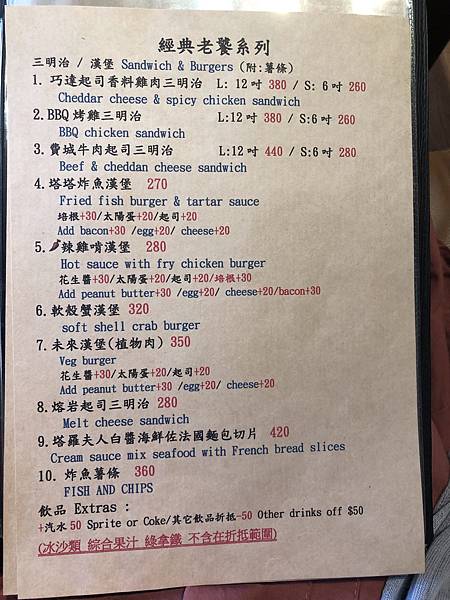 經典老饕系列
三明治 / 漢堡 Sandwich & Burgers (附:薯條)
1. 巧達起司香料雞肉三明治 L: 12吋 380 / S: 6吋 260
Cheddar cheese & spicy chicken sandwich
2.BBQ 烤雞三明治 L:12吋 380 / S:6吋 260
BBQ chicken sandwich
3. 費城牛肉起司三明治 L:12吋 440 / S:6吋 280
Beef & cheddan cheese sandwich
4.塔塔炸魚漢堡 270
Fried fish burger & tartar sauce
培根+30/太陽蛋+20/起司+20
Add bacon+30 /egg+20/ cheese+20
5.辣雞啃漢堡 280
Hot sauce with fry chicken burger
花生醬+30/太陽蛋+20/起司+20/培根+30
Add peanut butter+30 /egg+20/ cheese+20/bacon+30
6.軟殼蟹漢堡 320
soft shell crab burger
7.未來漢堡(植物肉) 350
Veg burger
花生醬+30/太陽蛋+20/起司+20
Add peanut butter+30 /egg+20/ cheese+20
8.熔岩起司三明治 280
Melt cheese sandwich
9.塔羅夫人白醬海鮮佐法國麵包切片 420
Cream sauce mix seafood with French bread slices
10. 炸魚薯條 360
FISH AND CHIPS
飲品 Extras :
+汽水 50 Sprite or Coke/其它飲品折抵-50 Other drinks off $50
(冰沙類 綜合果汁 綠拿鐵 不含在折抵範圍)